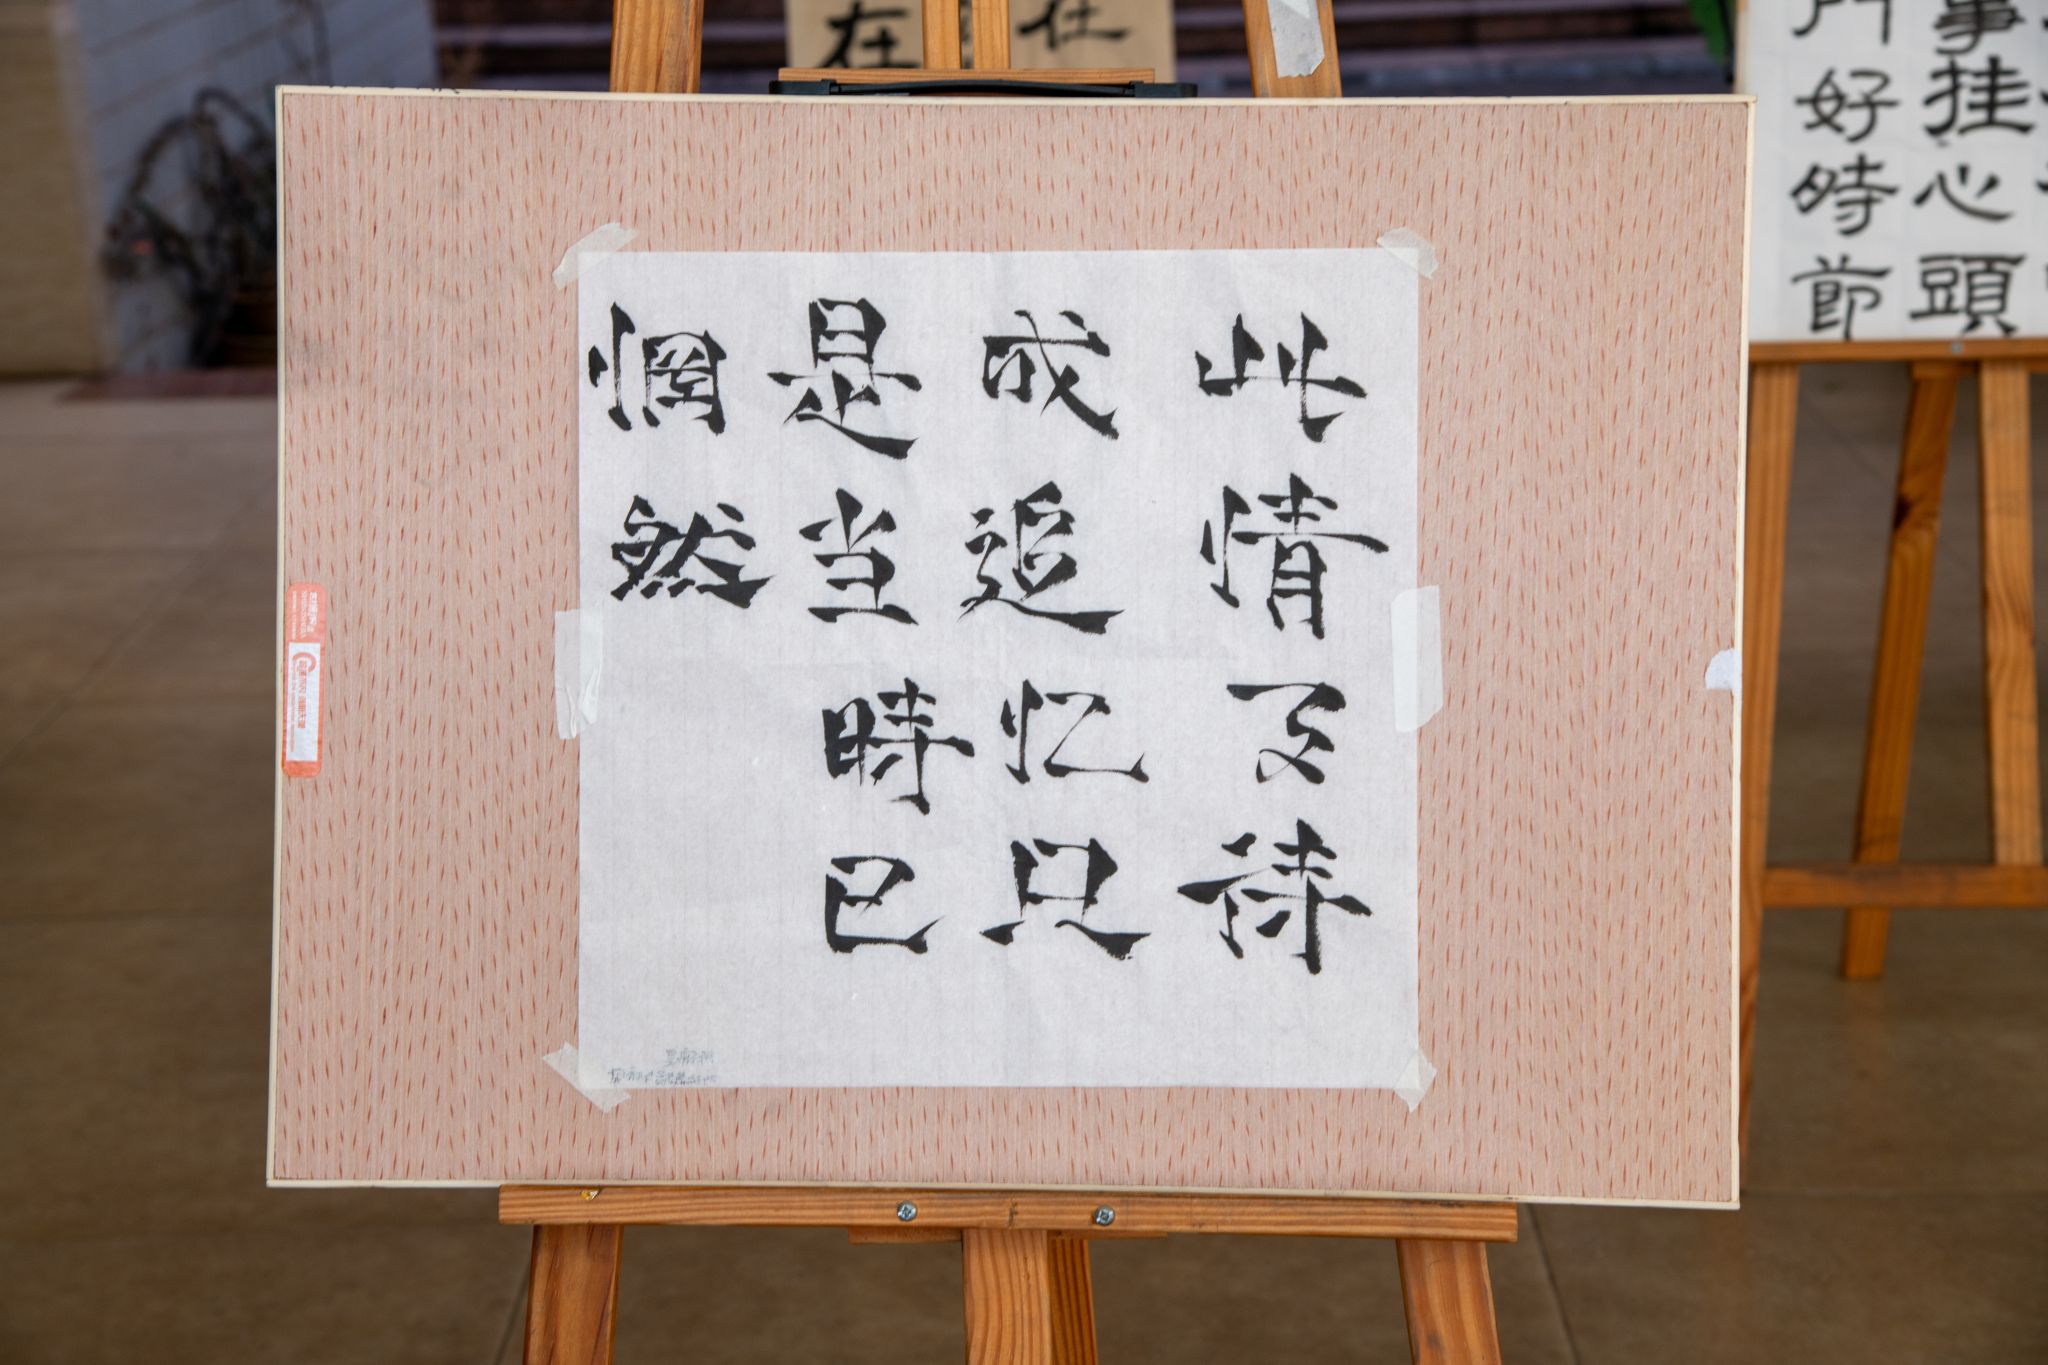 此情可待
成追忆只
是当時已
惘然
事挂心頭
好時節
在